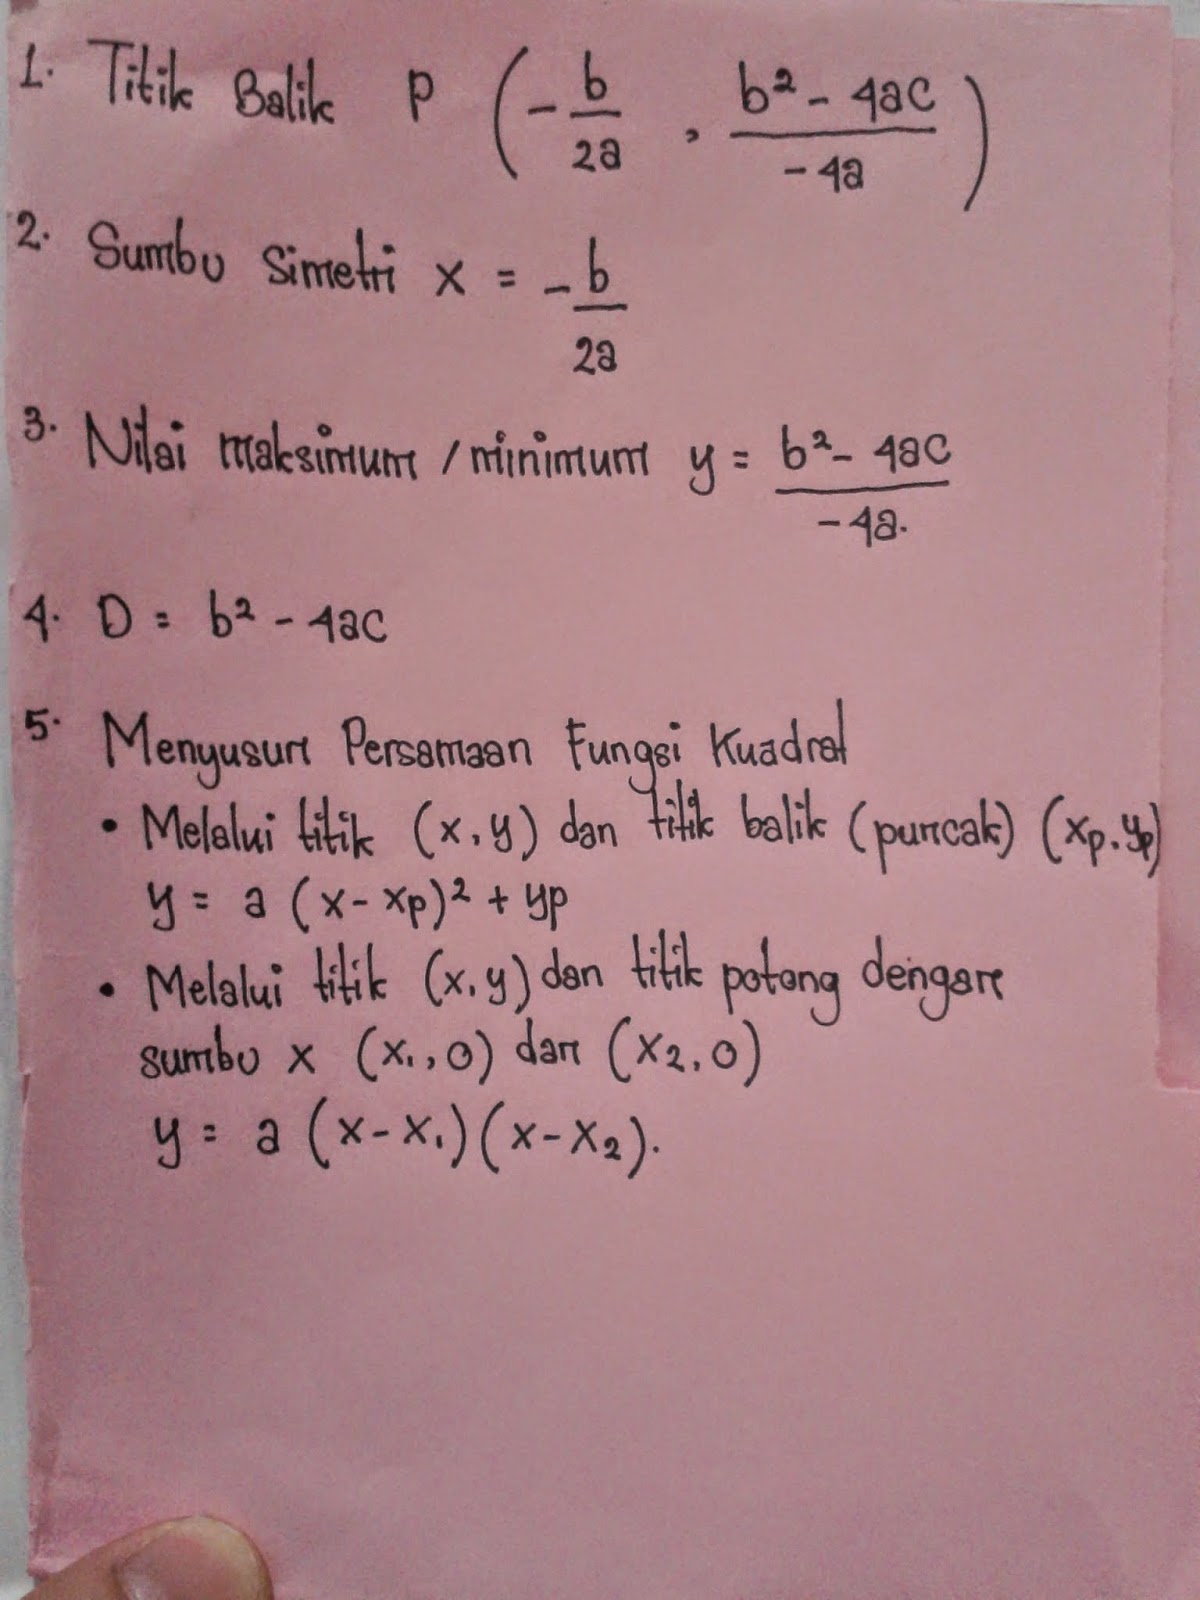 1. Titik Balik P (-b/2a, b² - 4ac/-4a)
2. Sumbu Simetri x = -b/2a
3. Nilai maksimum / minimum y = b² - 4ac/-4a.
4. D = b² - 4ac
5. Menyusun Persamaan Fungsi Kuadrat
• Melalui titik (x, y) dan titik balik (puncak) (xp, yp)
y = a (x - xp)² + yp
• Melalui titik (x, y) dan titik potong dengan
sumbu x (x₁, 0) dan (x₂, 0)
y = a (x - x₁) (x - x₂).